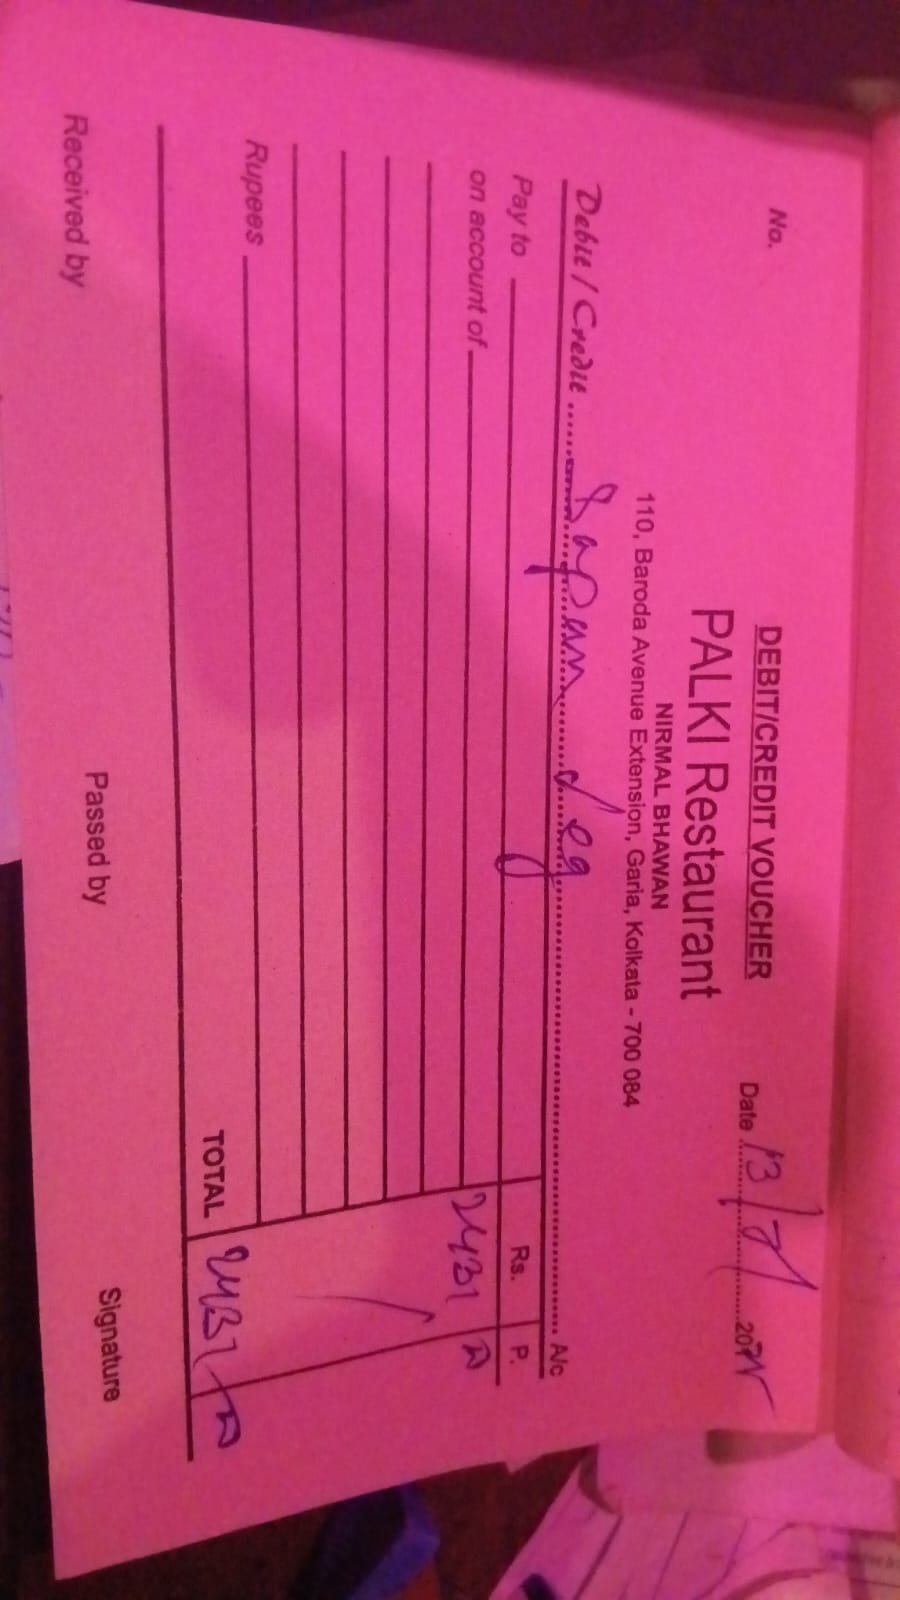 DEBIT/CREDIT VOUCHER
No.
PALKI Restaurant
Date 13/
NIRMAL BHAWAN
110, Baroda Avenue Extension, Garia, Kolkata - 700 084
Debit / Credit Sapan dey A/c
Pay to Rs. P.
on account of 2431
Rupees
TOTAL 2431
Received by Passed by Signature